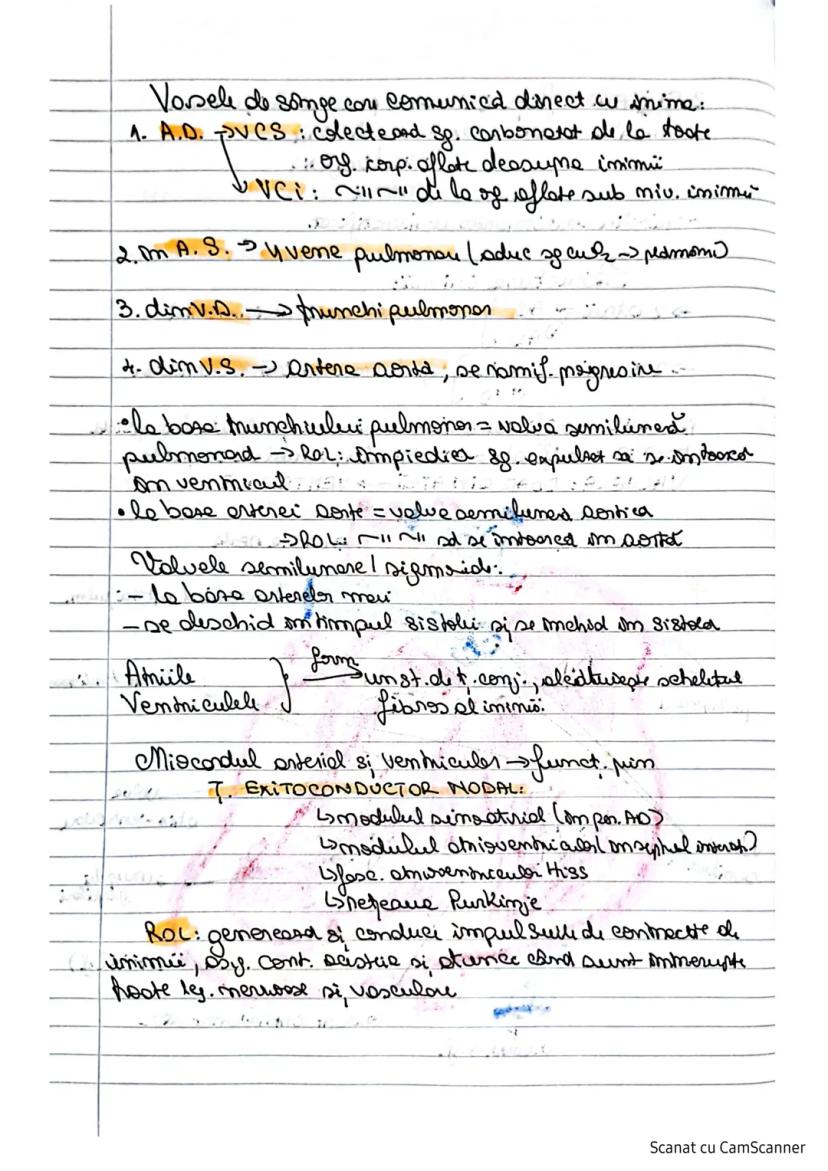 Vasele de sânge care comunică direct cu inima:
1. A.D. → VCS : colectează sg. carbonatat de la toate
org. corp. aflate deasupra inimii
↳ VCi : ~11~11 de la og aflate sub niv. inimii
2. în A.S. → 4 vene pulmonare (aduc sg cu O₂ → plămâni)
3. din V.D. → trunchi pulmonar
4. din V.S. → artera aortă, se ramif. progresiv.
• la baza trunchiului pulmonar = valva semilunară
pulmonară → ROL: împiedica sg. expulsat să se întoarcă
în ventricul
• la baza arterei aorte = valva semilunară aortica
→ ROL: ~11~11 să se întoarcă în aortă
Valvele semilunare / sigmoide:
- la baza arterelor mari
- se deschid în timpul sistolei și se închid în sistola
Atriile
Ventriculele } form → un st. de ț. conj., alcătuiește scheletul
fibros al inimii.
Miocardul arterial și ventricular → funcț. prin
Ț. EXITOCONDUCTOR NODAL:
↳ modulul sinoatrial (în per. AD)
↳ modulul atrioventricular (în septul interatr)
↳ fasc. atrioventricular Hiss
↳ rețeaua Purkinje
ROL: generează și conduce impulsurile de contracție ale
inimii, asig. cont. acesteia și atunci când sunt întrerupte
toate leg. nervoase și vasculare
Scanat cu CamScanner